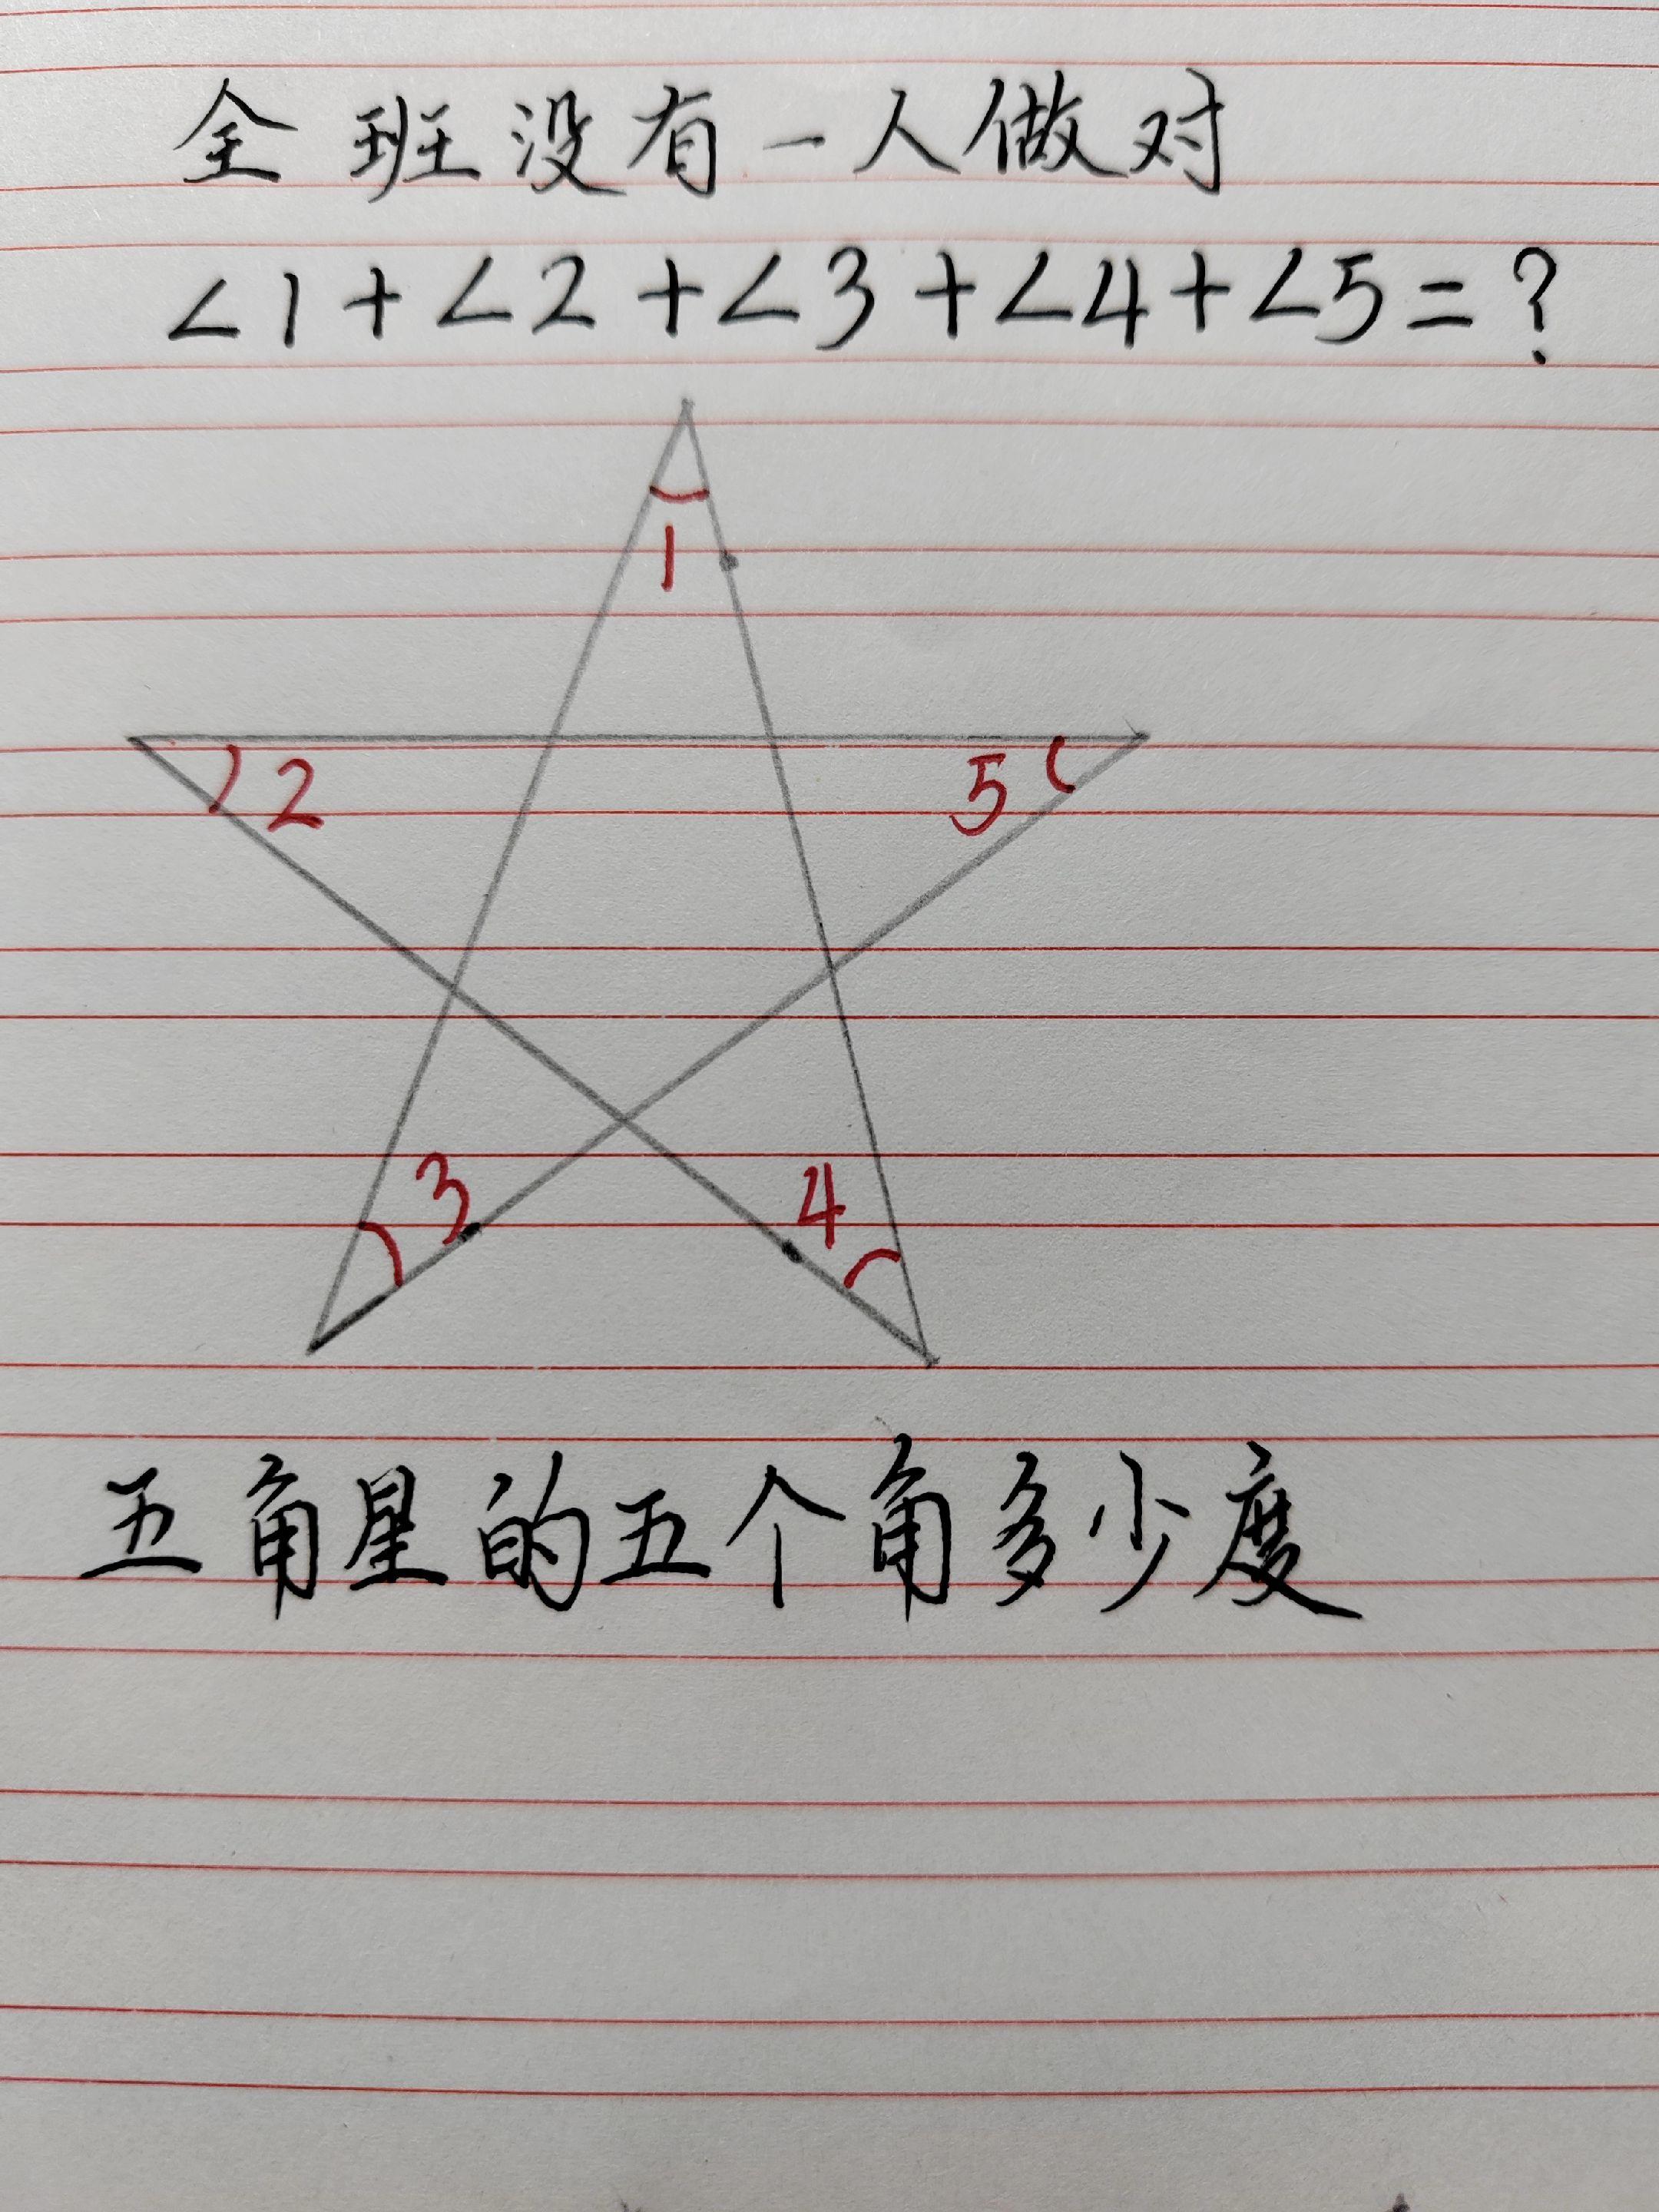 全班没有一人做对
∠1+∠2+∠3+∠4+∠5=?
1
2
5
3
4
五角星的五个角多少度